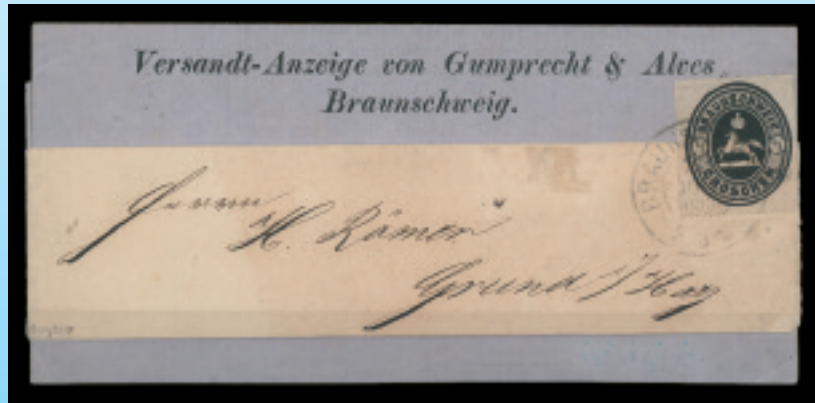 Versandt-Anzeige von Gumprecht & Alves
Braunschweig.
BRAUNSCHWEIG
GROSCHEN
Herrn
H. Römer
Grund